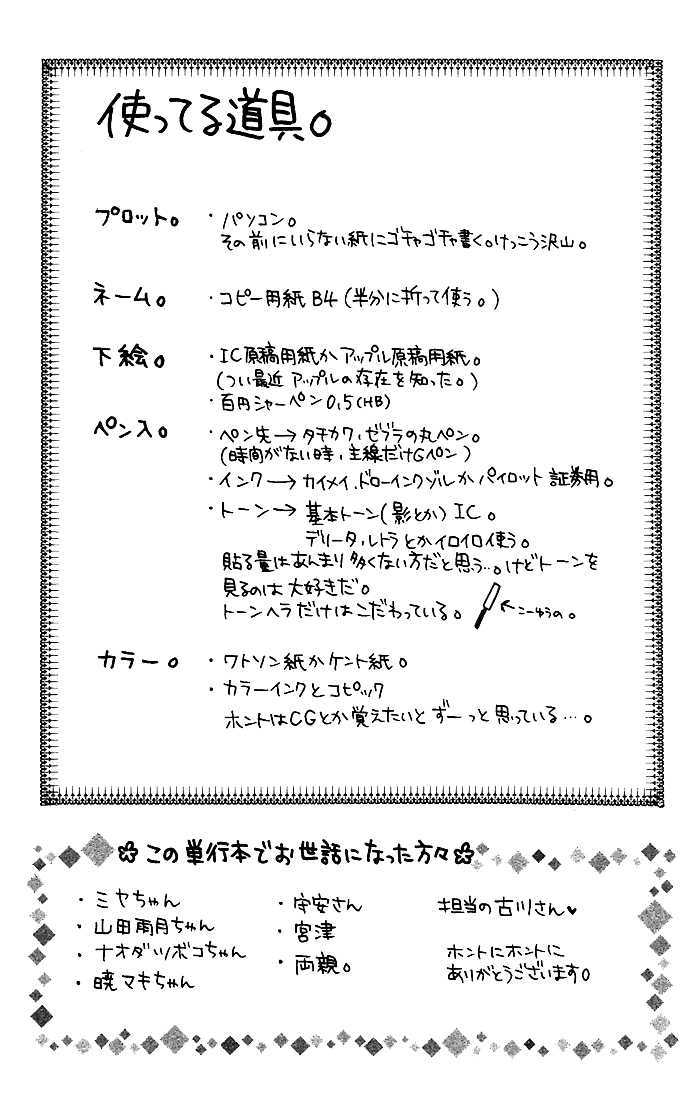 使ってる道具。
プロット。
・パソコン。
その前にいらない紙にゴチャゴチャ書く。けっこう沢山。
ネーム。
・コピー用紙 B4 (半分に折って使う。)
下絵。
・IC原稿用紙かアップル原稿用紙。
(つい最近アップルの存在を知った。)
・百円シャーペン0,5(HB)
ペン入。
・ペン先→タチカワ、ゼブラの丸ペン。
(時間がない時、主線だけGペン)
・インク→カイメイ、ドローインクゾルかパイロット 証券用。
・トーン→基本トーン(影とか)IC。
デリータ、レトラとかイロイロ使う。
貼る量はあんまり多くない方だと思う…。けどトーンを
見るのは大好きだ。
トーンヘラだけはこだわっている。 ←こーゆうの。
カラー。
・ワトソン紙かケント紙。
・カラーインクとコピック
ホントはCGとか覚えたいとずーっと思っている…。
この単行本でお世話になった方々
・ミヤちゃん
・山田雨月ちゃん
・ナオダツボコちゃん
・暁マキちゃん
・宇安さん
・宮津
・両親。
担当の古川さん♥
ホントにホントに
ありがとうございます。